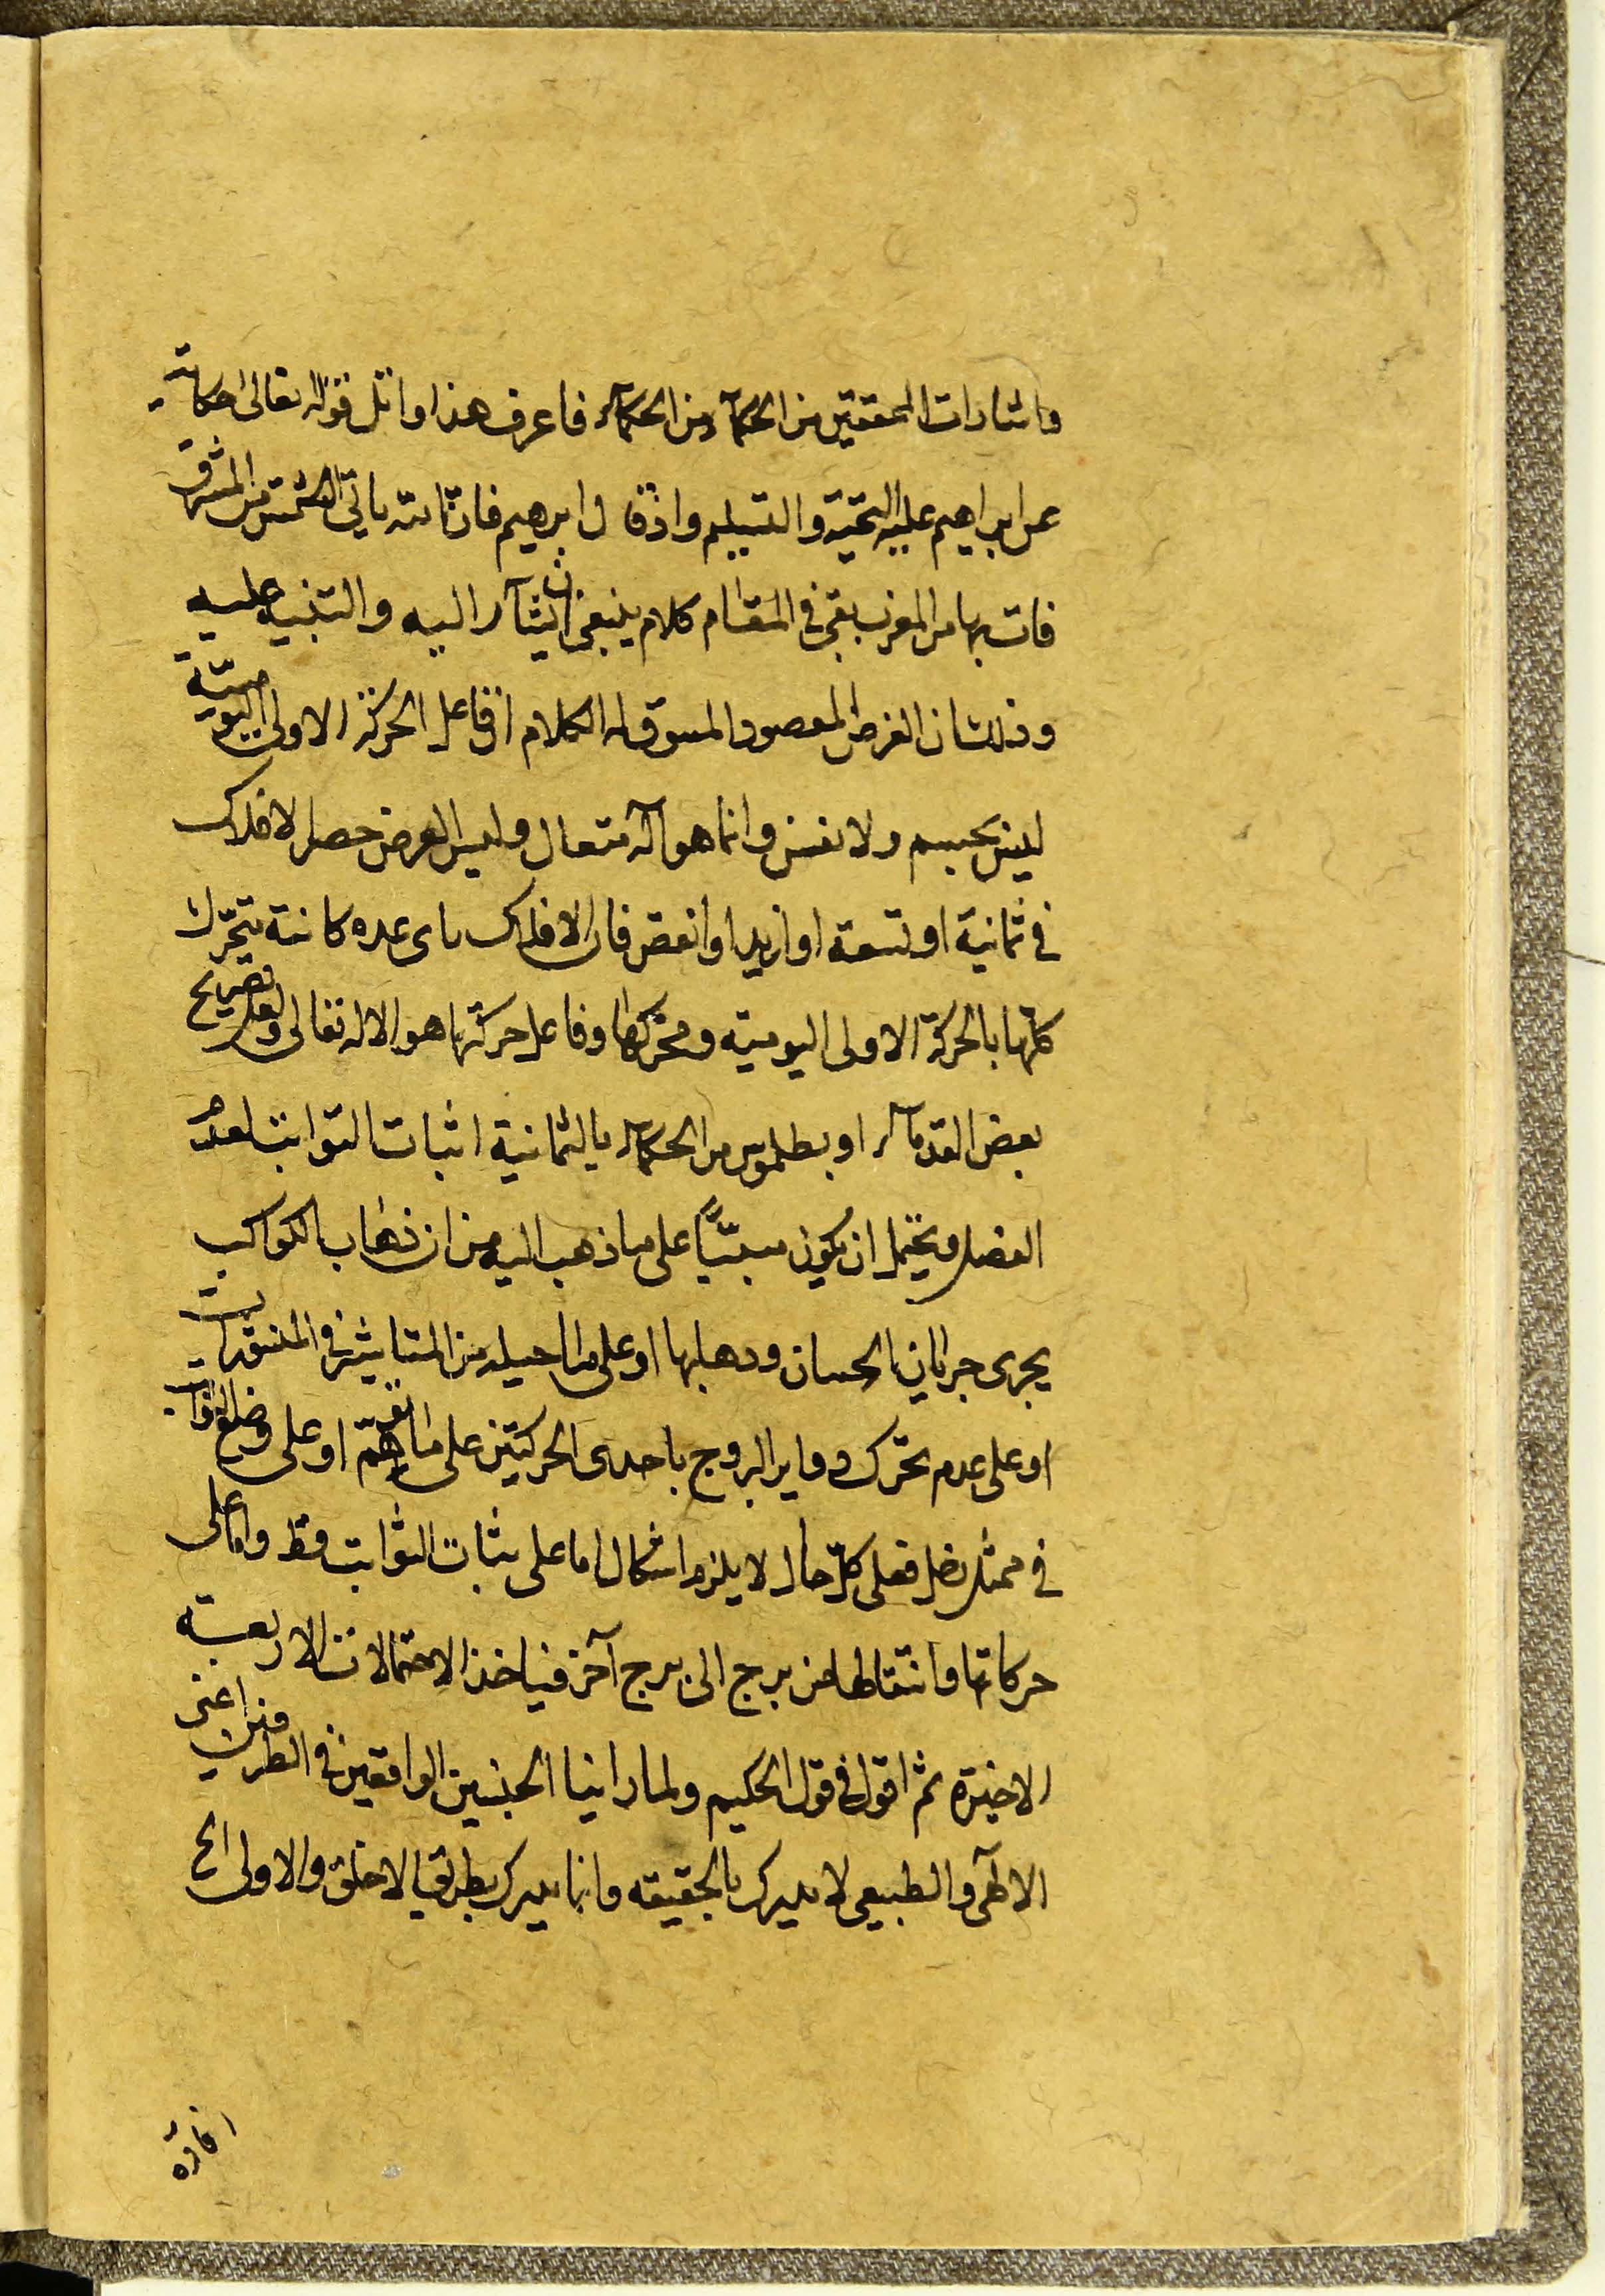 واشارات المحققين من الحكمآء من الحكمآء فاعرف هذا واتل قوله تعالى حكاية
عن ابراهيم عليه التحية والتسليم واذ قال ابرهيم فان الله ياتى بالشمس من المشرق
فات بها من المغرب بقى فى المقام كلام ينبغى ان يشآر اليه والتنبيه عليه
وذلك ان الغرض المقصود المسوق له الكلام ان فاعل الحركة الاولى اليومية
ليس بجسم ولا نفس وانما هو آله متعال وليس الغرض حصر الافلاك
فى ثمانية او تسعة او ازيد او انقص فان الافلاك باى عده كانت تتحرك
كلها بالحركة الاولى اليومية ومحركها وفاعل حركتها هو الاله تعالى ولعل تصريح
بعض القدمآء او بطلموس من الحكمآء بالثمانية اثبات الثوابت لعدم
الفصل ويحتمل ان يكون مبنيًا على ما ذهب اليه من ان ذهاب الكواكب
يجرى جريان الحسان اوعلى من
او على عدم تحرك دواير البروج باحدى الحركتين على ما او على
فى ممثل زحل فعلى كل حال لا يلزم اشكال اما على ثبات الثوابت فقط واما على
حركاتها وانتقالها من برج الى برج آخر فياخذ الاحتمالات الاربعة
الاخيرة ثم اقول فى قول الحكيم ولما راينا الجنسين الواقعين فى الطرفين اعنى
الالهى والطبيعى لا يدرك بالحقيقه وانما يدرك بطريق الاخلق والاولى الخ
افاده